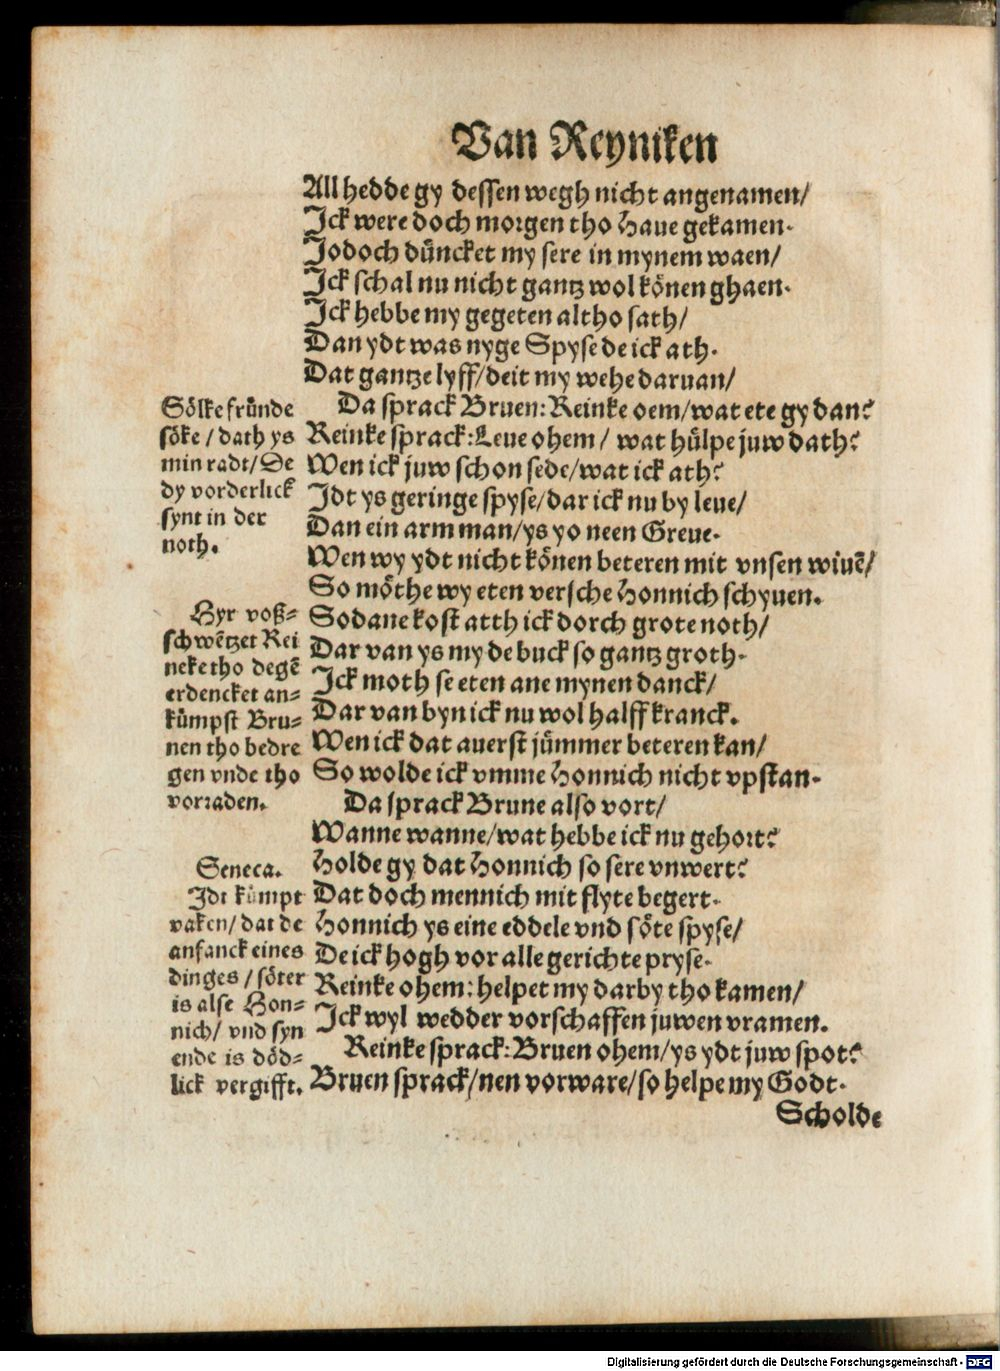 Van Reyniken
All hedde gy dessen wegh nicht angenamen/
Jck were doch morgen tho Haue gekamen.
Jodoch důncket my sere in mynem waen/
Jck schal nu nicht gantz wol kônen ghaen.
Jck hebbe my gegeten altho sath/
Dan ydt was nyge Spyse de ick ath.
Dat gantze lyff/deit my wehe daruan/
Da sprack Bruen: Reinke oem/wat ete gy dan?
Reinke sprack: Leue ohem/ wat hůlpe juw dath?
Wen ick juw schon sede/wat ick ath?
Jdt ys geringe spyse/dar ick nu by leue/
Dan ein arm man/ys yo neen Greue.
Wen wy ydt nicht kônen beteren mit vnsen wiuē/
So môthe wy eten versche Honnich schyuen.
Sodane kost atth ick dorch grote noth/
Dar van ys my de buck so gantz groth.
Jck moth se eten ane mynen danck/
Dar van byn ick nu wol halff kranck.
Wen ick dat auerst jůmmer beteren kan/
So wolde ick vmme Honnich nicht vpstan.
Da sprack Brune also vort/
Wanne wanne/wat hebbe ick nu gehort?
Holde gy dat Honnich so sere vnwert?
Dat doch mennich mit flyte begert.
Honnich ys eine eddele vnd sôte spyse/
De ick hogh vor alle gerichte pryse.
Reinke ohem: helpet my darby tho kamen/
Jck wyl wedder vorschaffen juwen vramen.
Reinke sprack: Bruen ohem/ys ydt juw spot?
Bruen sprack/nen vorware/so helpe my Godt.
Scholde
Sôlke frůnde
sôke / dath ys
min radt/ De
dy vorderlick
synt in der
noth.
Hyr voß=
schwētzet Rei
neke tho degē
erdencket an=
kůmpst Bru=
nen tho bedre
gen vnde tho
vorraden.
Seneca.
Jdt kůmpt
vaken/ dat de
anfanck eines
dinges / sôter
is alse Hon=
nich/ vnd syn
ende is dôd=
lick vergifft.
Digitalisierung gefördert durch die Deutsche Forschungsgemeinschaft - DFG